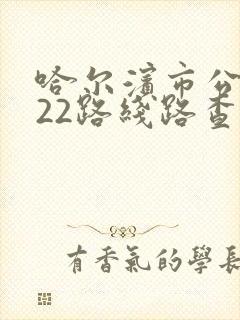 哈尔滨市公
22路线路查
有香氣的學長